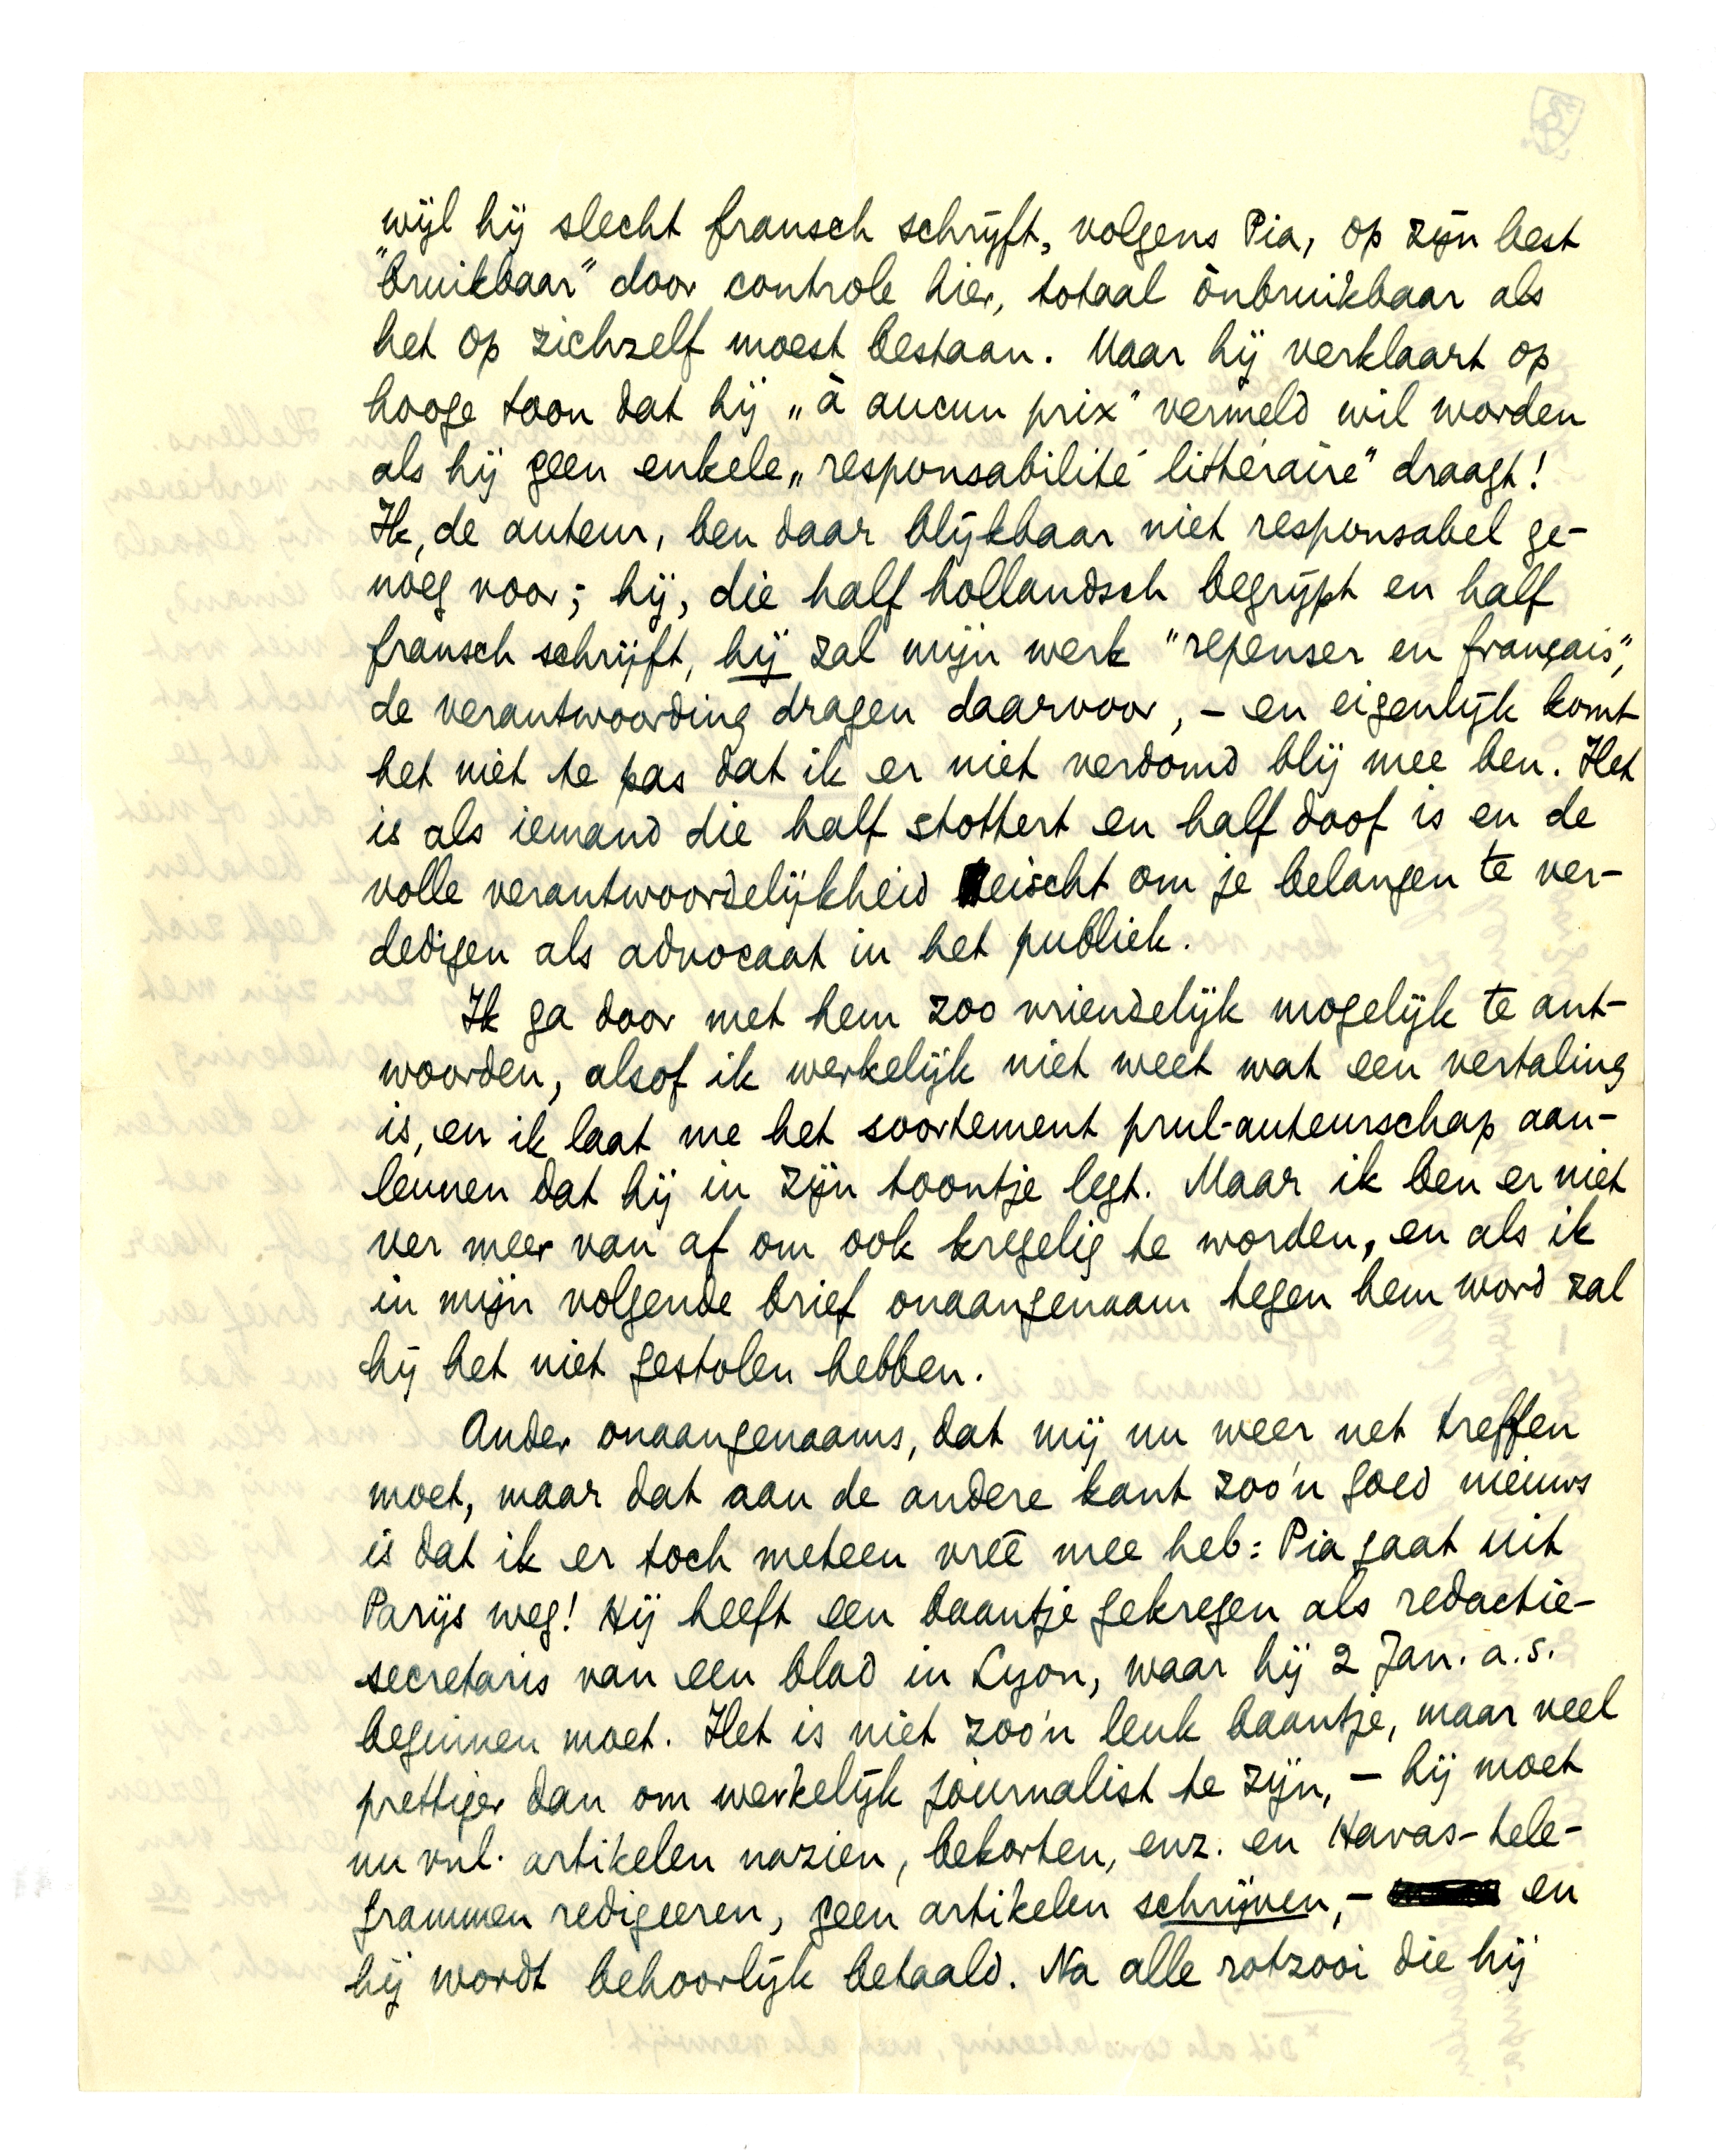 wijl hij slecht fransch schrijft, volgens Pia, op zijn best
"bruikbaar" door controle hier, totaal ònbruikbaar als
het op zichzelf moest bestaan. Maar hij verklaart op
hooge toon dat hij „à aucun prix" vermeld wil worden
als hij geen enkele „responsabilité littéraire" draagt!
Ik, de auteur, ben daar blijkbaar niet responsabel ge-
noeg voor; hij, die half hollandsch begrijpt en half
fransch schrijft, hij zal mijn werk "repenser en français",
de verantwoording dragen daarvoor, – en eigenlijk komt
het niet te pas dat ik er niet verdomd blij mee ben. Het
is als iemand die half stottert en half doof is en de
volle verantwoordelijkheid eischt om je belangen te ver-
dedigen als advocaat in het publiek.
Ik ga door met hem zoo vriendelijk mogelijk te ant-
woorden, alsof ik werkelijk niet weet wat een vertaling
is, en ik laat me het soortement prul-auteurschap aan-
leunen dat hij in zijn toontje legt. Maar ik ben er niet
ver meer van af om ook kregelig te worden, en als ik
in mijn volgende brief onaangenaam tegen hem word zal
hij het niet gestolen hebben.
Ander onaangenaams, dat mij nu weer net treffen
moet, maar dat aan de andere kant zoo'n goed nieuws
is dat ik er toch meteen vreê mee heb: Pia gaat uit
Parijs weg! Hij heeft een baantje gekregen als redactie-
secretaris van een blad in Lyon, waar hij 2 Jan. a.s.
beginnen moet. Het is niet zoo'n leuk baantje, maar veel
prettiger dan om werkelijk journalist te zijn, – hij moet
nu vnl. artikelen nazien, bekorten, enz. en Havas-tele-
grammen redigeeren, geen artikelen schrijven, – en
hij wordt behoorlijk betaald. Na alle rotzooi die hij